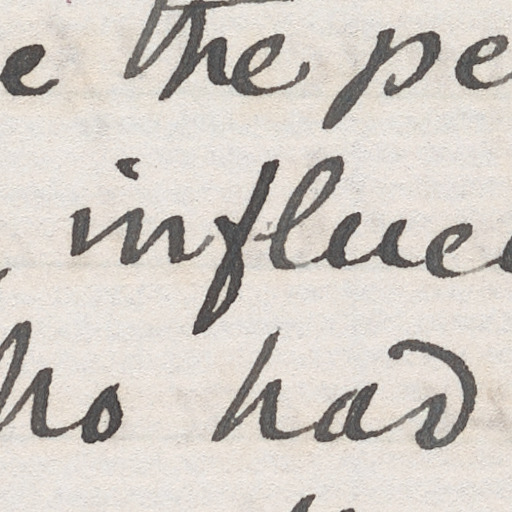 e the pe
influe
ho had